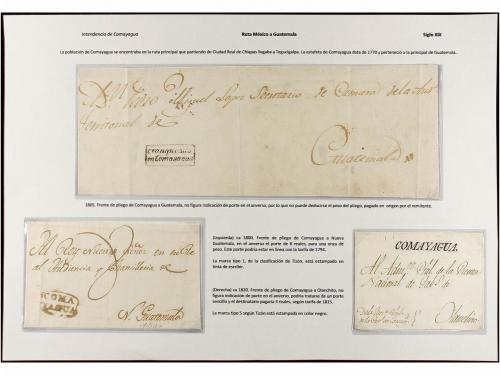 Intendencia de Comayagua
Ruta México a Guatemala
Siglo XIX
La población de Comayagua se encontraba en la ruta principal que partiendo de Ciudad Real de Chiapas llegaba a Tegucigalpa. La estafeta de Comayagua data de 1770 y perteneció a la principal de Guatemala.
Miguel Lopez Secretario de Camara de la Aud
territorial de
Franqueado
en Comayagua
Guatemala
1805. Frente de pliego de Comayagua a Guatemala, no figura indicación de porte en el anverso, por lo que no puede deducirse el peso del pliego, pagado en origen por el remitente.
Al Rey Nuestro Señor en su Rl
Audiencia y Chancilleria de
COMA
YAGUA
N. Guatemala
(Izquierda) ca 1800. Frente de pliego de Comayagua a Nueva
Guatemala, en el anverso el porte de 8 reales, para una onza de
peso. Este porte podría estar en línea con la tarifa de 1794.
La marca tipo 1, de la clasificación de Tizón, está estampado en
tinta de escribir.
(Derecha) ca 1820. Frente de pliego de Comayagua a Olanchito, no
figura indicación de porte en el anverso, podría tratarse de un porte
sencillo y el destinatario pagaría 3 reales, según tarifa de 1815.
La marca tipo 5 según Tizón está estampada en color negro.
COMAYAGUA.
Al Adm.r
de la Renta
Nacional de
Olanchito